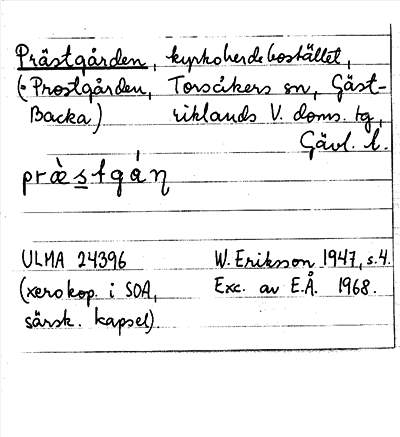 Prästgården, kyrkoherdebostället,
(: Prostgården, Torsåkers sn, Gäst-
Backa) riklands V. doms. tg,
Gävl. l.
præ̀stgán
ULMA 24396 W. Eriksson 1947, s. 4.
(xerokop. i SOA, Exc. av E.Å. 1968.
särsk. kapsel).